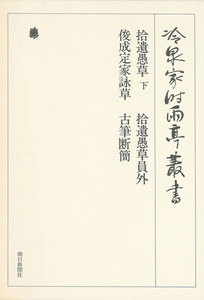 冷泉家時雨亭叢書
拾遺愚草 下　拾遺愚草員外
俊成定家詠草　古筆断簡
朝日新聞社